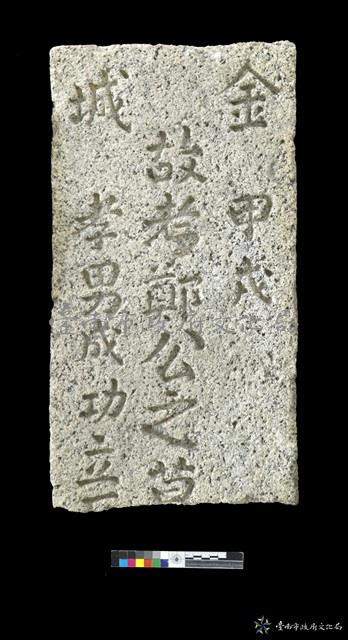 金 甲戌
故考鄭公之墓
城 孝男成功立
臺南市政府文化局
臺南市政府文化局